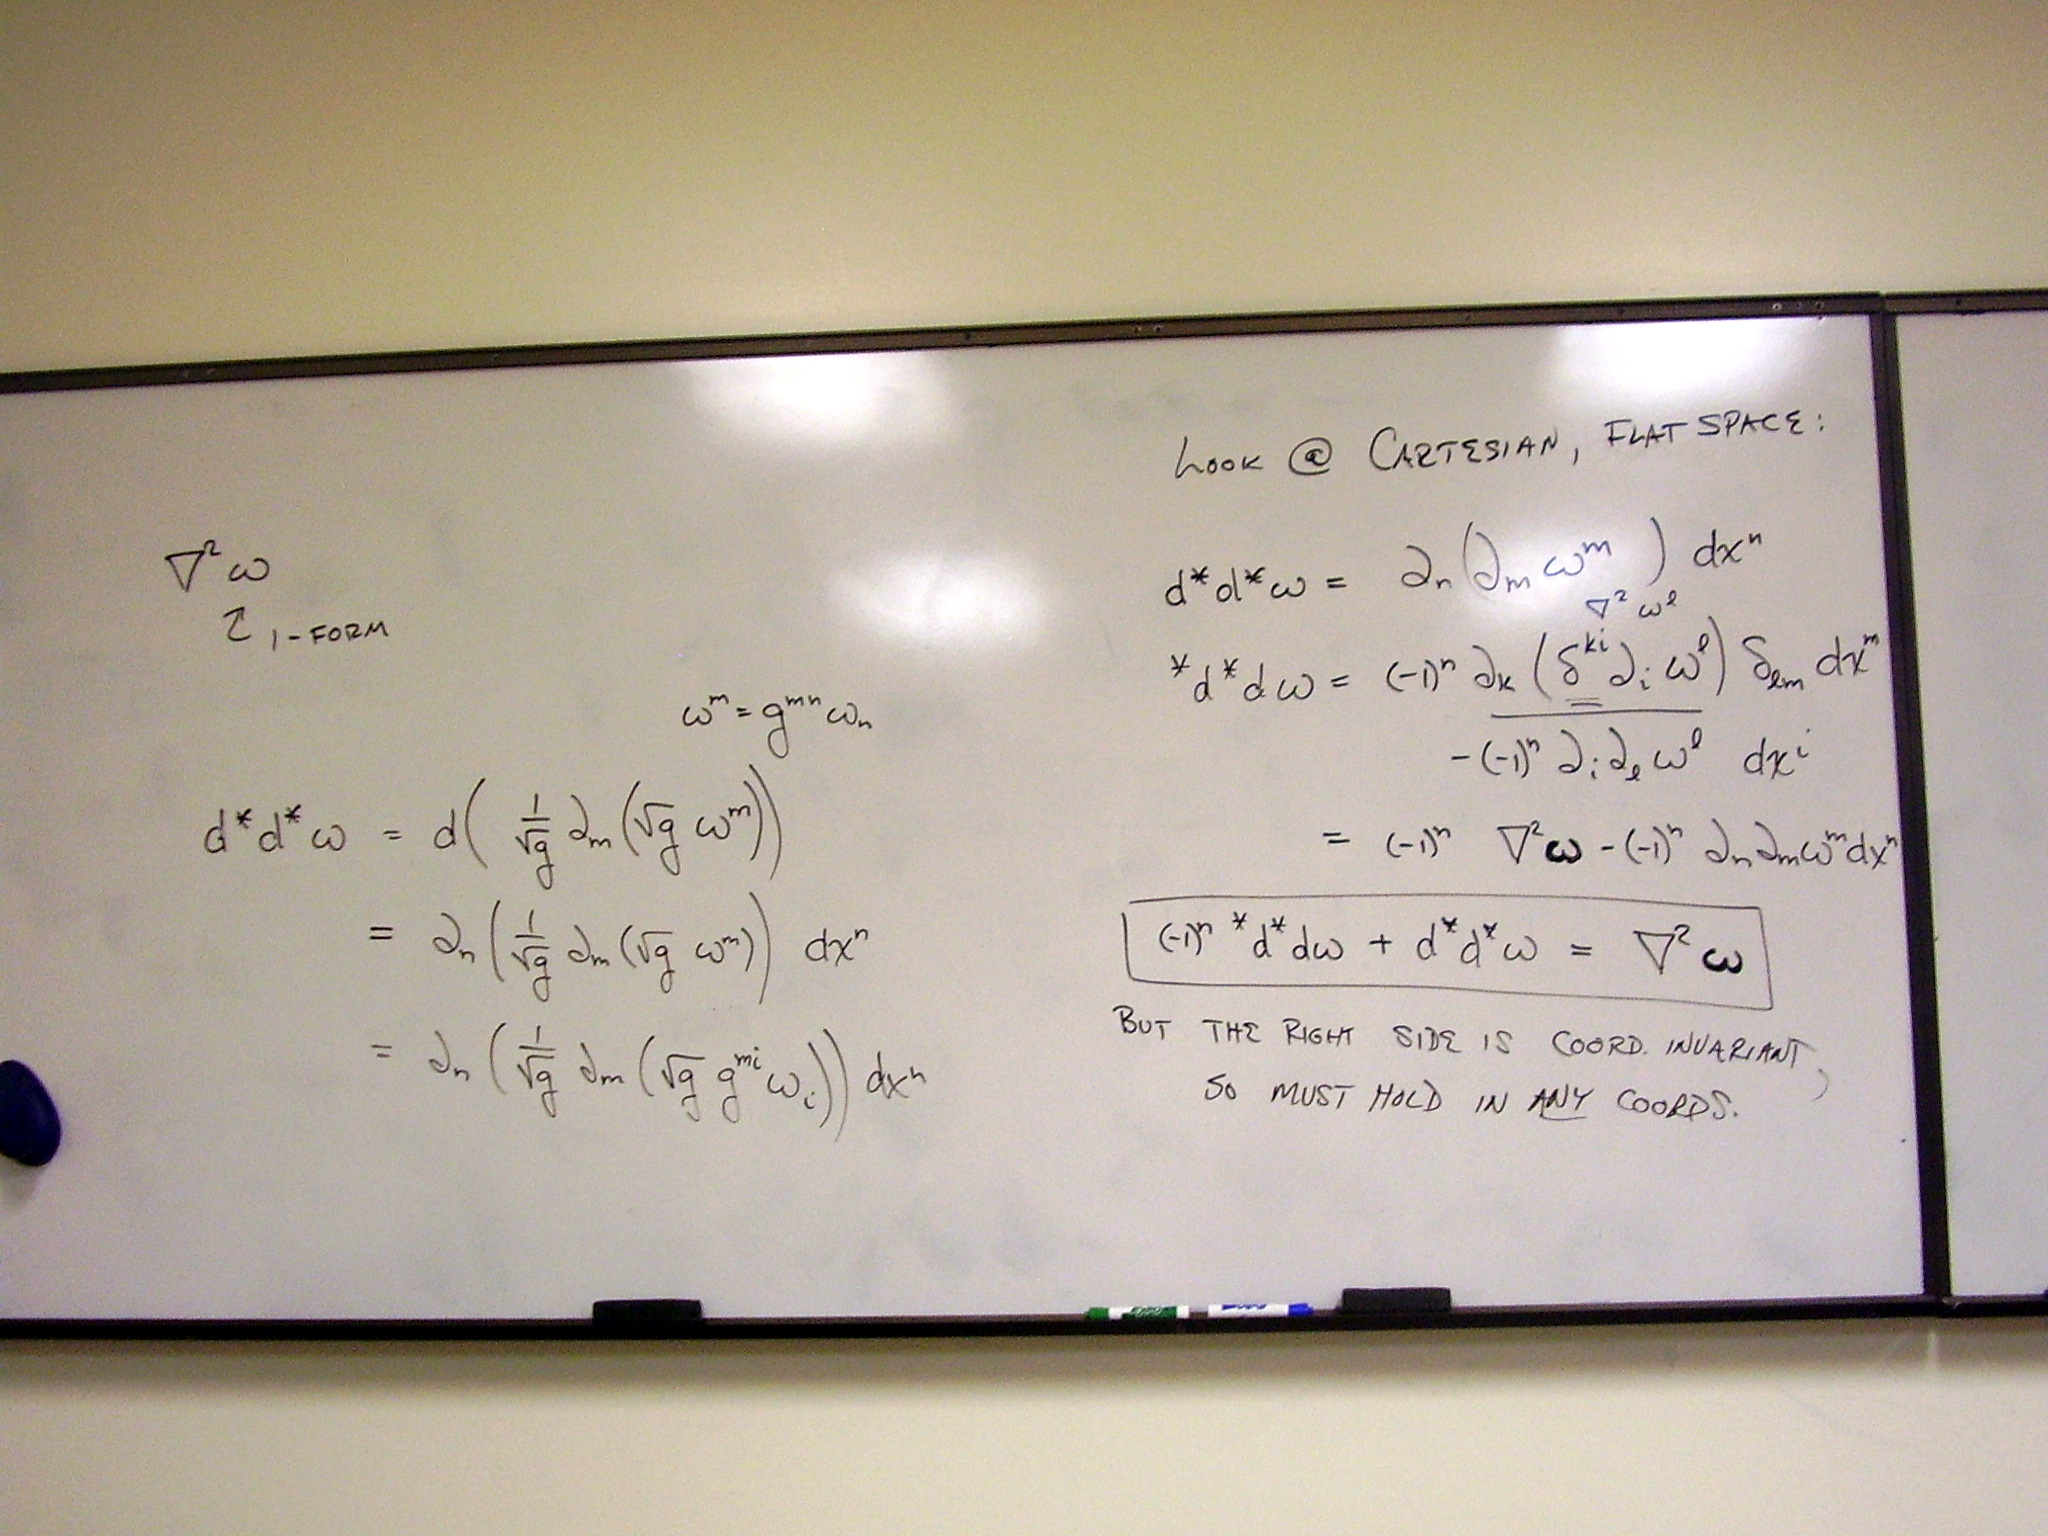 ∇²ω
↑ 1-FORM
ωᵐ = gᵐⁿ ωₙ
d*d*ω = d( 1/√g ∂ₘ (√g ωᵐ))
= ∂ₙ ( 1/√g ∂ₘ (√g ωᵐ)) dxⁿ
= ∂ₙ ( 1/√g ∂ₘ (√g gᵐⁱ ωᵢ)) dxⁿ
LOOK @ CARTESIAN, FLAT SPACE:
d*d*ω = ∂ₙ (∂ₘ ωᵐ) dxⁿ
∇²ωˡ
*d*dω = (-1)ⁿ ∂ₖ (δᵏⁱ ∂ᵢ ωˡ) δₗₘ dxᵐ
-(-1)ⁿ ∂ᵢ∂ₗ ωˡ dxⁱ
= (-1)ⁿ ∇²ω - (-1)ⁿ ∂ₙ∂ₘωᵐdxⁿ
(-1)ⁿ *d*dω + d*d*ω = ∇²ω
BUT THE RIGHT SIDE IS COORD. INVARIANT,
SO MUST HOLD IN ANY COORDS.